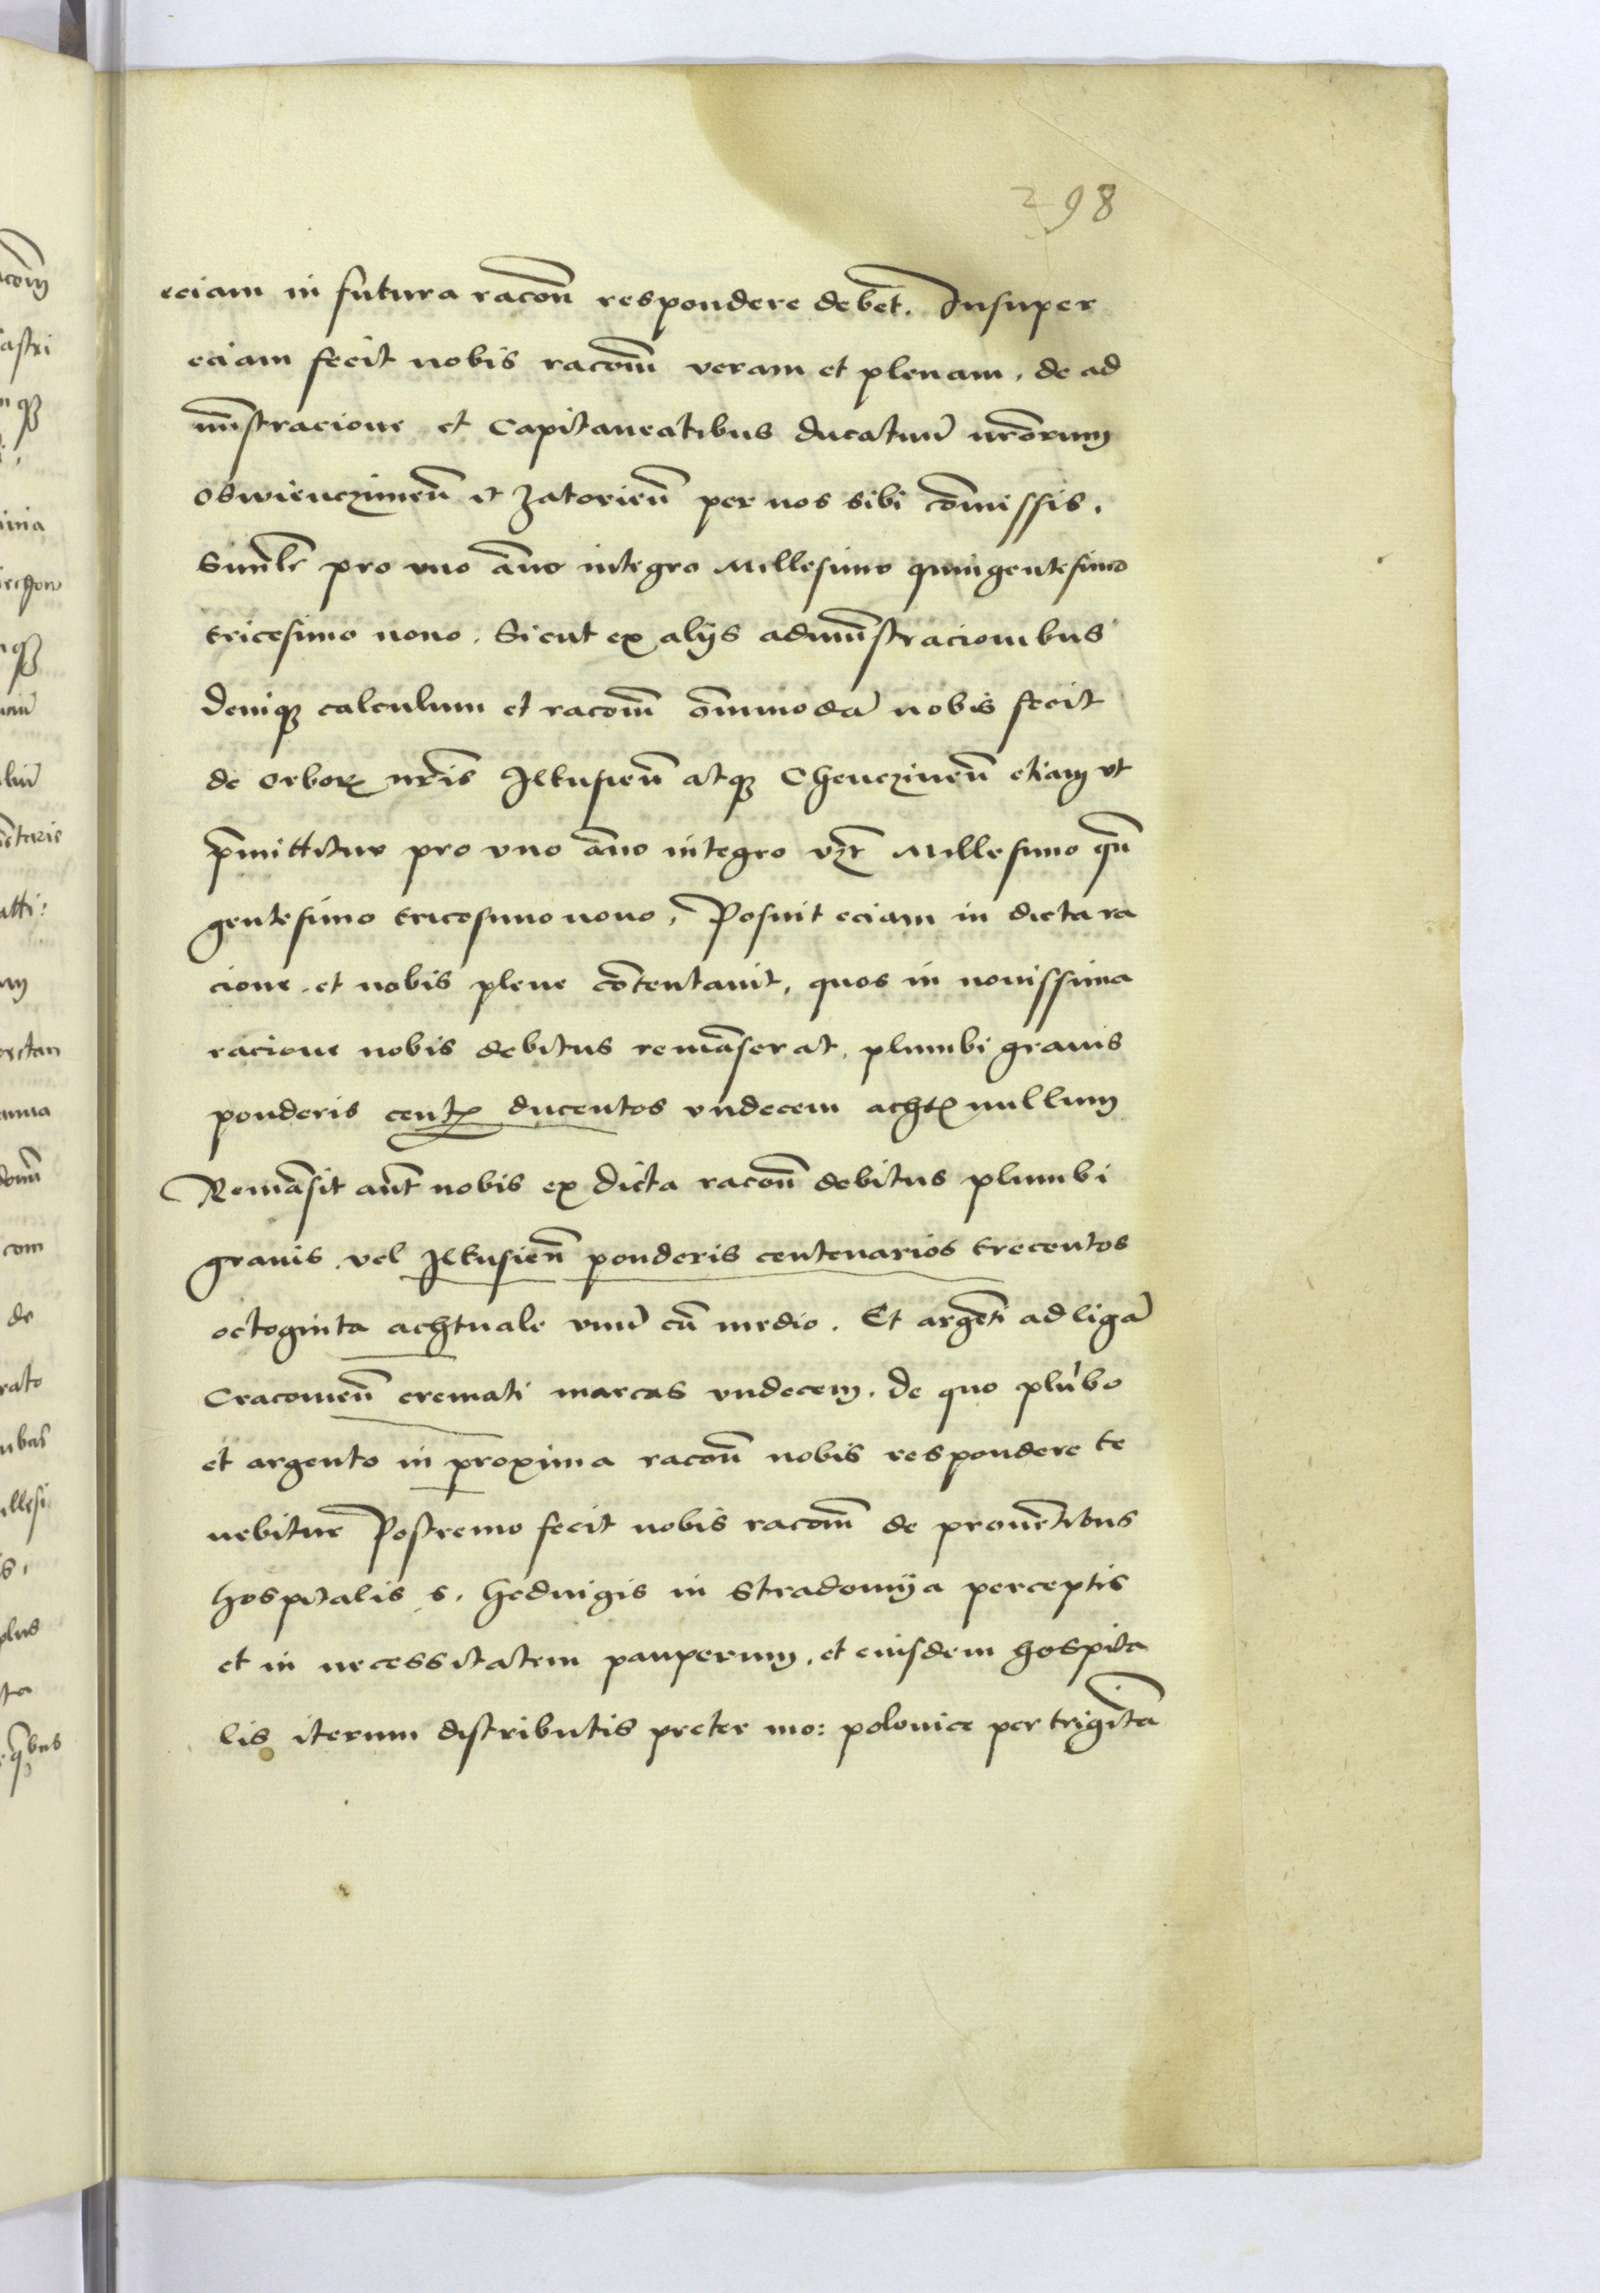 298
eciam in futura racon̄ respondere debet. Insuper
eciam fecit nobis racom̄ veram et plenam. de ad
mīstracione et Capitaneatibus ducatuū nr̄orum
oswienczimen̄ et Zatorien̄ per nos sibi com̄issis.
Simlr̄ pro vno an̄o integro Millesimo quingentesimo
tricesimo nono. Sicut ex alijs admīstracionibus
Deniqȝ calculum et racom̄ om̄imodā nobis fecit
de orborꝫ nr̄is Ilkusien̄ atqȝ Chenczinen̄ etiam vt
p̄mittitur pro vno an̄o integro vꝫt Millesimo qn̄
gentesimo tricesimo nono. Posuit eciam in dicta ra
cione. et nobis plene cōtentauit, quos in nouissima
racione nobis debitus remāserat. plumbi grauis
ponderis centꝫ ducentos vndecem achtꝫ nullum
Remāsit aūt nobis ex dicta racon̄ debitus plumbi
grauis. vel Ilkusien̄ ponderis centenarios trecentos
octoginta achtuale vnū cū medio. Et argēti ad ligā
Cracouien̄ cremati marcas vndecem. de quo plūbo
et argento in proxima racon̄ nobis respondere te
nebitur Postremo fecit nobis racom̄ de prouētibus
hospitalis s. Heduigis in Stradomija perceptis
et in necessitatem pauperum. et eiusdem hospita
lis iterum distributis preter mo: polonice per trigīta